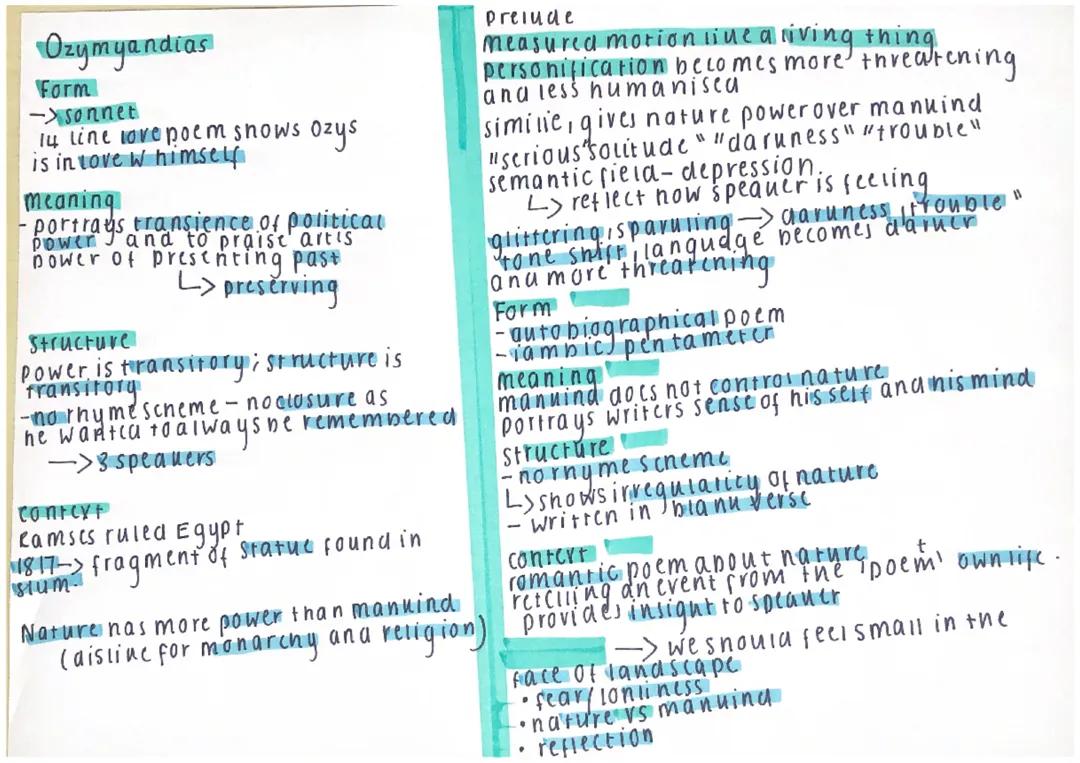 Ozymyandias
Form
-> sonnet
14 line love poem shows Ozys
is in love w himself
meaning
- portrays transience of political
power and to praise artis
power of presenting past
↳ preserving
structure
power is transitory; structure is
transitory
- no rhyme scheme - no closure as
he wanted to always be remembered
-> 3 speakers
context
Ramses ruled Egypt
1817 -> fragment of statue found in
slum.
Nature has more power than mankind
(dislike for monarchy and religion)
prelude
measured motion like a living thing
personification becomes more threatening
and less humanised
similie, gives nature power over mankind
"serious solitude" "darkness" "trouble"
semantic field - depression.
↳ reflect how speaker is feeling
glittering, sparkling -> darkness, trouble"
tone shift, language becomes darker
and more threatening
Form
- autobiographical poem
- iambic pentameter
meaning
mankind does not control nature
portrays writers sense of his self and his mind
structure
- no rhyme scheme
↳ shows irregularity of nature
- written in blank verse
context
romantic poem about nature
retelling an event from the 'poem' own life.
t
provides insight to speaker
-> we should feel small in the
face of landscape
• fear/lonliness
• nature vs mankind
• reflection